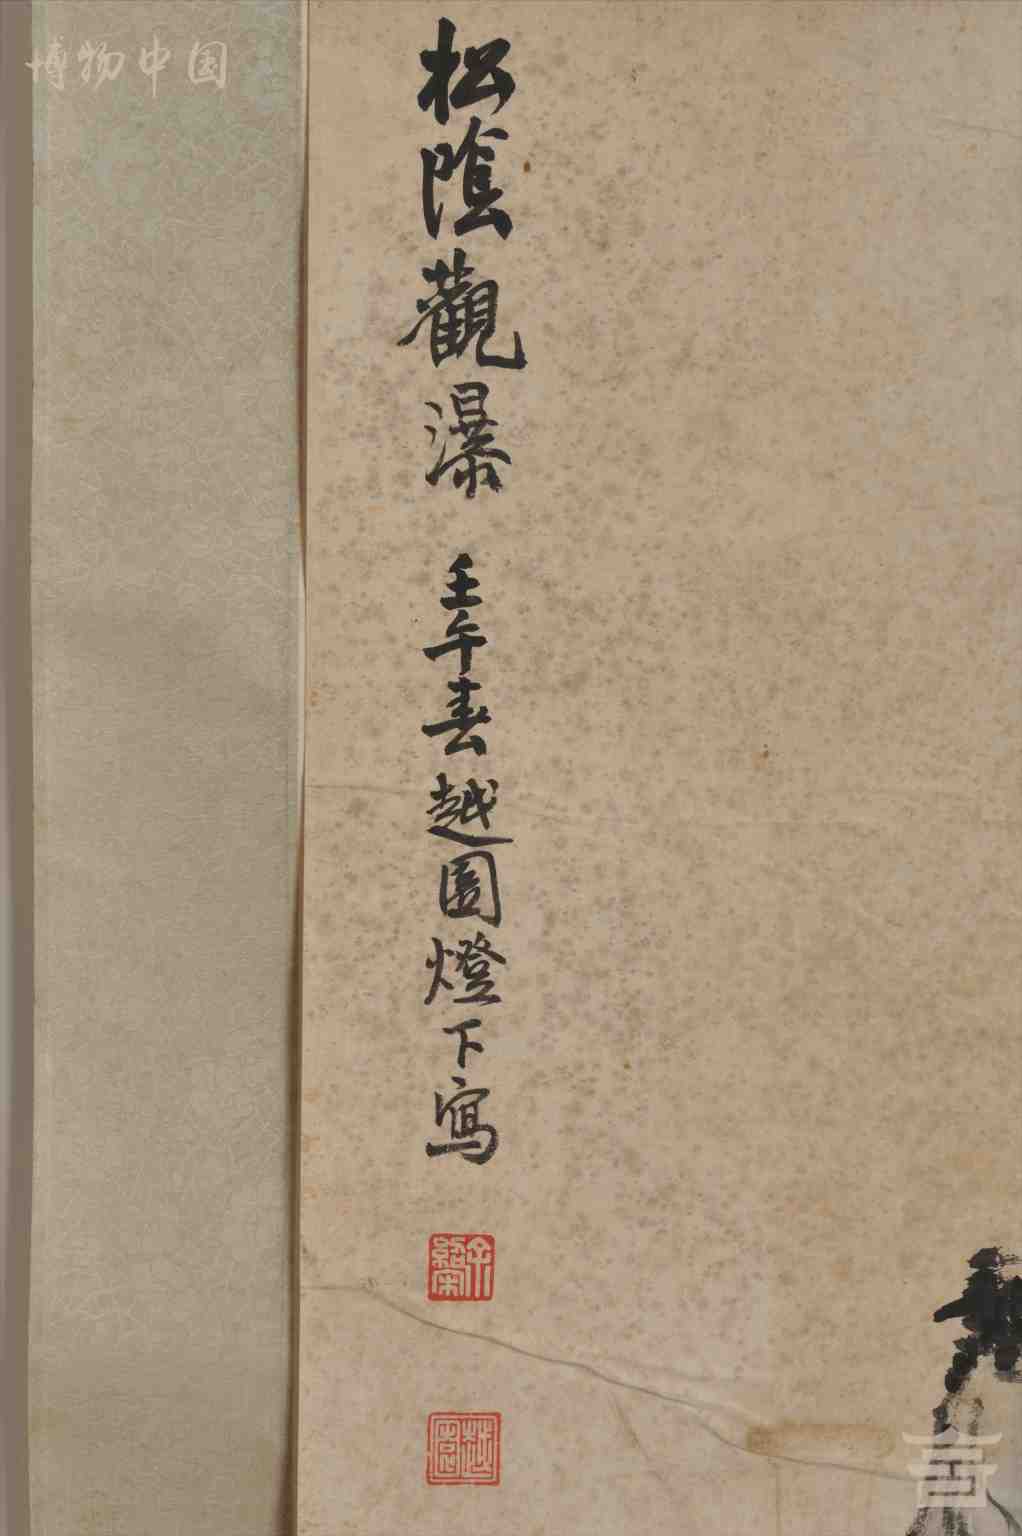 博物中国
松陰觀瀑
壬午春越園燈下寫
余紹宋
越園